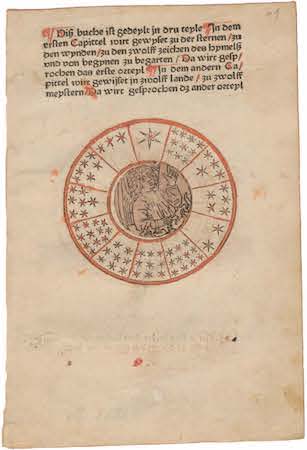 ¶ Diß buche ist gedeylt in dru teyle ¶ In dem
ersten Capittel wirt gewyset zu der sternen / zu
den wynden / zu den zwolff zeichen des hymels
und von begynen zu begarten / Da wirt gesp/
rochen das erste orteyl ¶ In dem andern Ca/
pittel wirt gewijset in zwolff lande / zu zwolff
meystern / Da wirt gesprochen dz ander orteyl